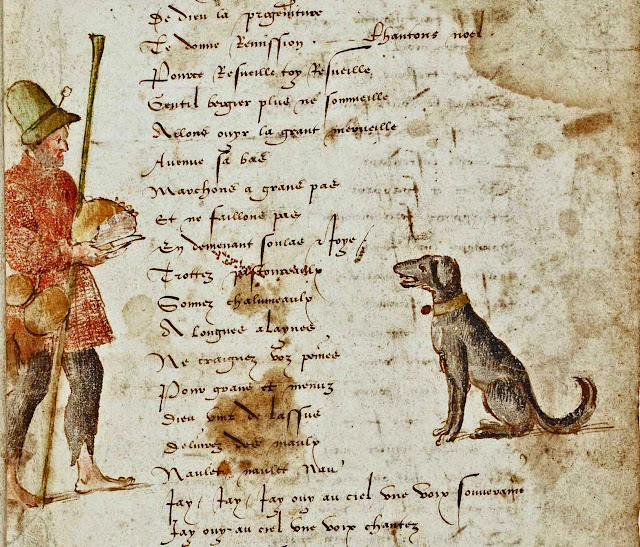 De dieu la progeniture
Te donne Remission. Chantons noel
Pouvre Resveille toy Resveille
Gentil bergier plus ne sommeille
Allons ouyr la grant merveille
Avenue sa bas
Marchons a grans pas
Et ne faillons pas
En demenant soulas & Joye
Trottez pastoureaulx
Sonnez chalumeaulx
A longues alaynes
Ne craignez voz peines
Pour grans et menuz
Dieu vint de lassus
delivrez des maulx
Naulet naulet Nau
Jay, Jay, Jay ouy au ciel une voix souveraine
Jay ouy au ciel une voix chanter